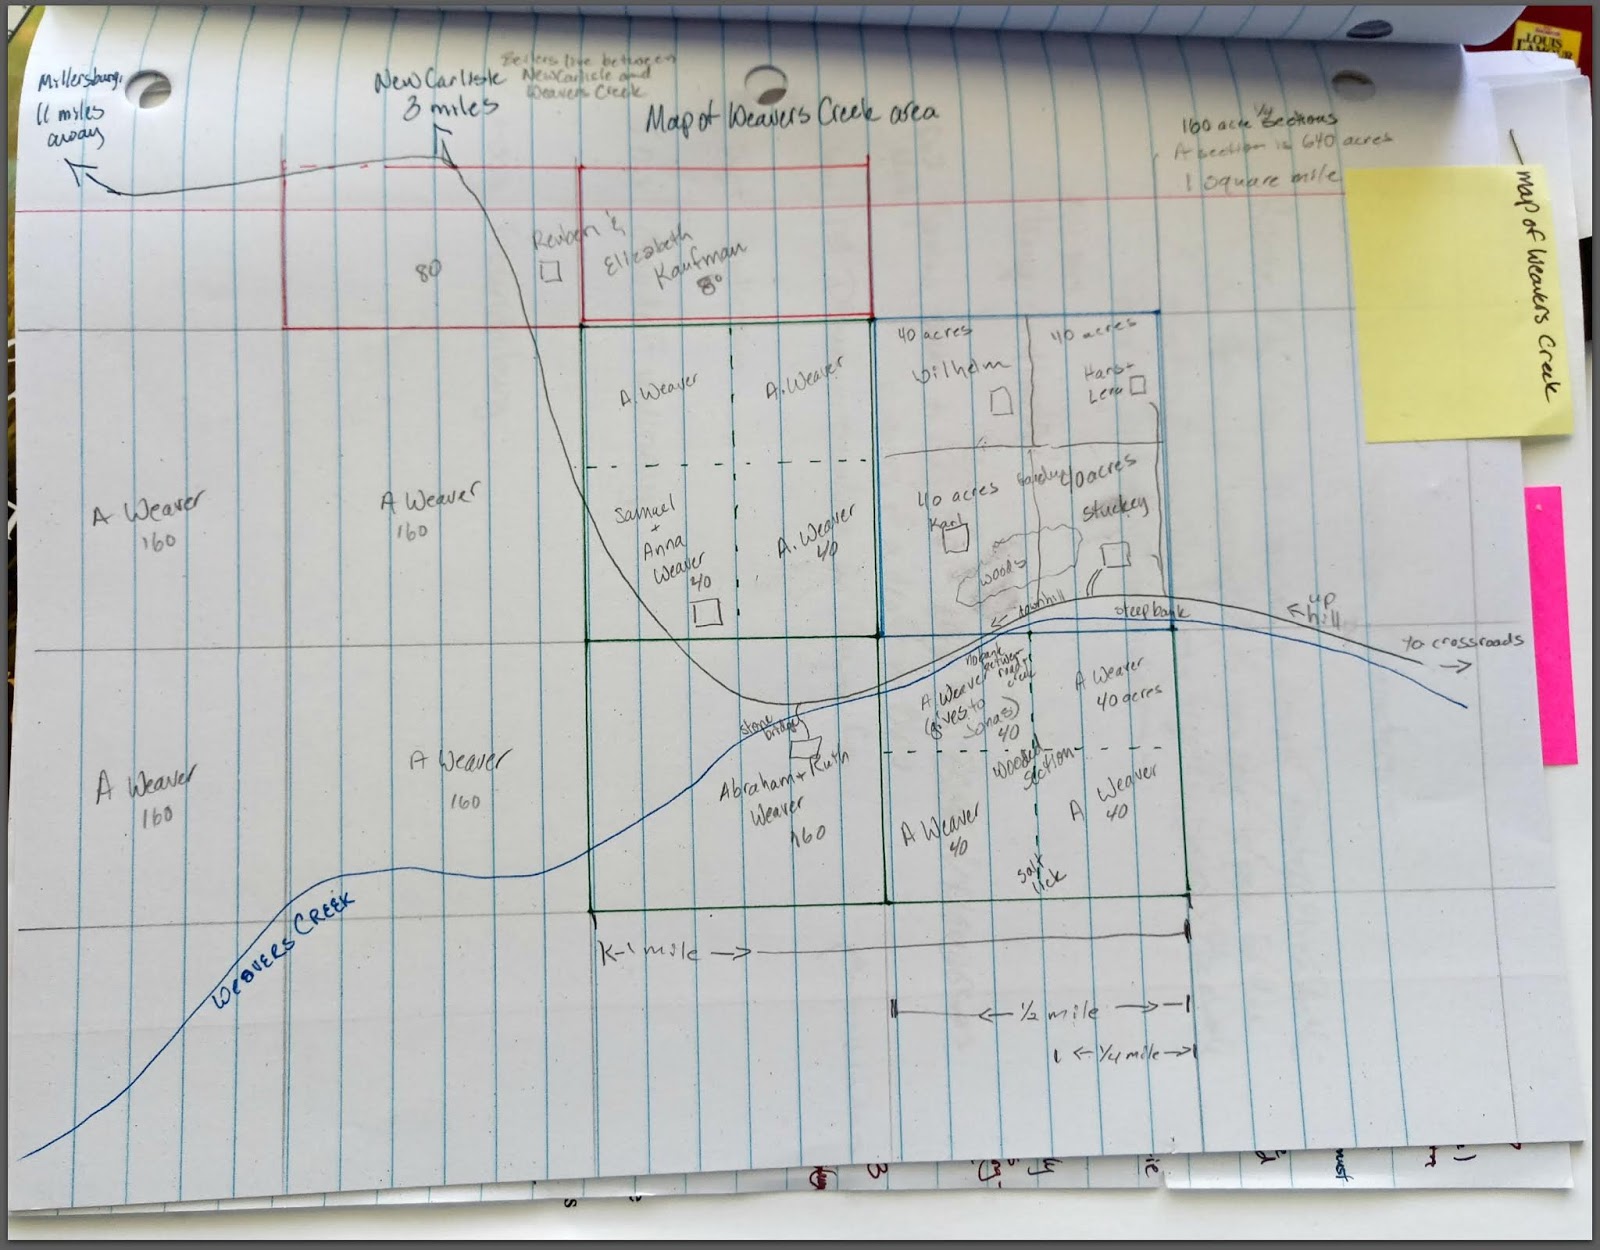 Millersburg,
11 miles
away
New Carlisle
3 miles
live between
New Carlisle and
Weavers Creek
Map of Weavers Creek area
160 acre 1/4 sections
A section is 640 acres
1 square mile
map of Weavers Creek
LOUIS
L'AMOUR
80
Reuben &
Elizabeth
Kaufman
80
A. Weaver
A. Weaver
40 acres
Wilhelm
40 acres
Hans +
Lena
A Weaver
160
A Weaver
160
Samuel
+
Anna
Weaver
40
A. Weaver
40
40 acres
Karl
40 acres
Stuckey
woods
downhill
steep bank
up
hill
to crossroads
no bank
between
road +
creek
A Weaver
(gives to
Jonas)
40
A Weaver
40 acres
stone
bridge
Abraham + Ruth
Weaver
160
Wooded
Section
A Weaver
160
A Weaver
160
A Weaver
40
A Weaver
40
Salt
lick
WEAVERS CREEK
1 mile
1/2 mile
1/4 mile